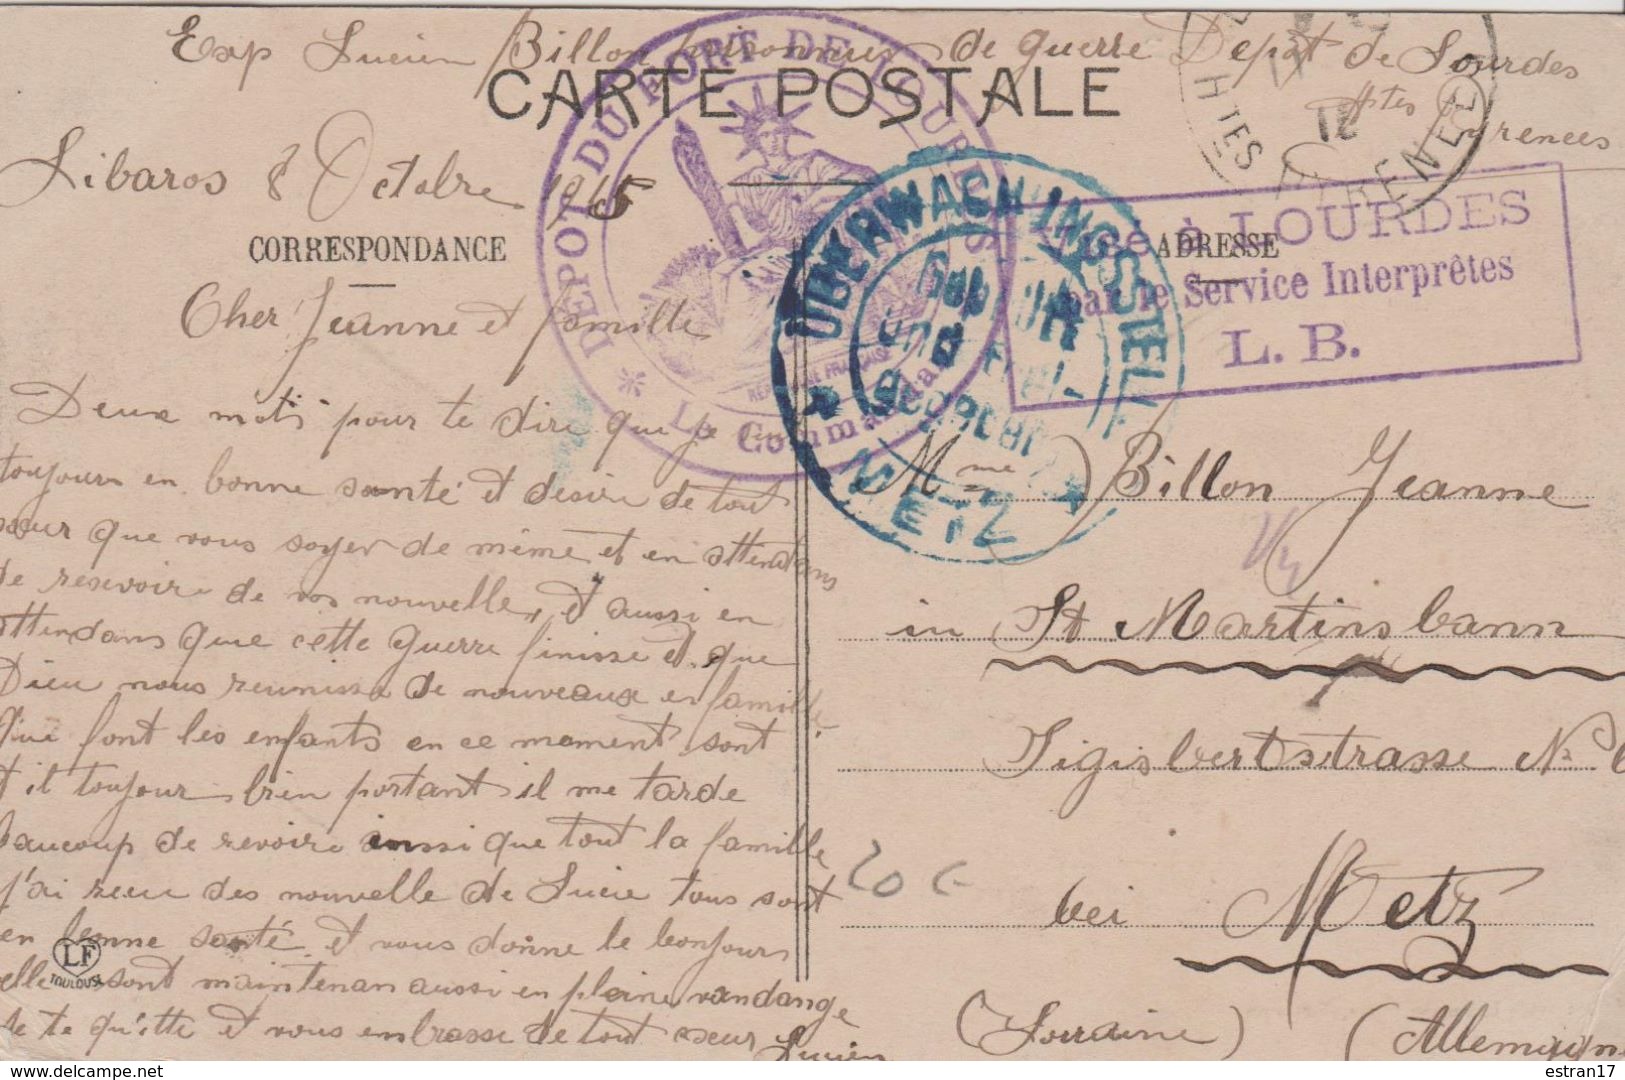 Exp Lucien Billon prisonnier de guerre Depot de Lourdes
Htes Pyrenees
CARTE POSTALE
Libaros 8 Octobre 1915
CORRESPONDANCE
ADRESSE
Cher Jeanne et famille
Deux mots pour te dire que je suis
toujours en bonne santé et desire de tout
coeur que vous soyer de même et en attendans
de resevoire de vos nouvelle, et aussi en
attendans que cette guerre finisse et que
Dieu nous reunisse de nouveaux en famille.
Que font les enfants en ce moment sont
t il toujour bien portant il me tarde
beaucoup de revoire ainssi que tout la famille
j'ai recu des nouvelle de Lucie tous sont
en bonne santé et vous donne le bonjours
elle sont maintenan aussi en pleine vandange
Je te quitte et vous embrasse de tout coeur
Lucien
Mme Billon Jeanne
in St Martinsbann
Sigisbertstrasse No 6
bei Metz
(Lorraine) (Allemagne
20 €
DEPOT DU FORT DE LOURDES
REPUBLIQUE FRANÇAISE
* Le Commandant
ÜBERWACHUNGSSTELLE
METZ
Visé à LOURDES
par le Service Interprêtes
L. B.
HTES PYRENEES
LF
TOULOUSE
estran17